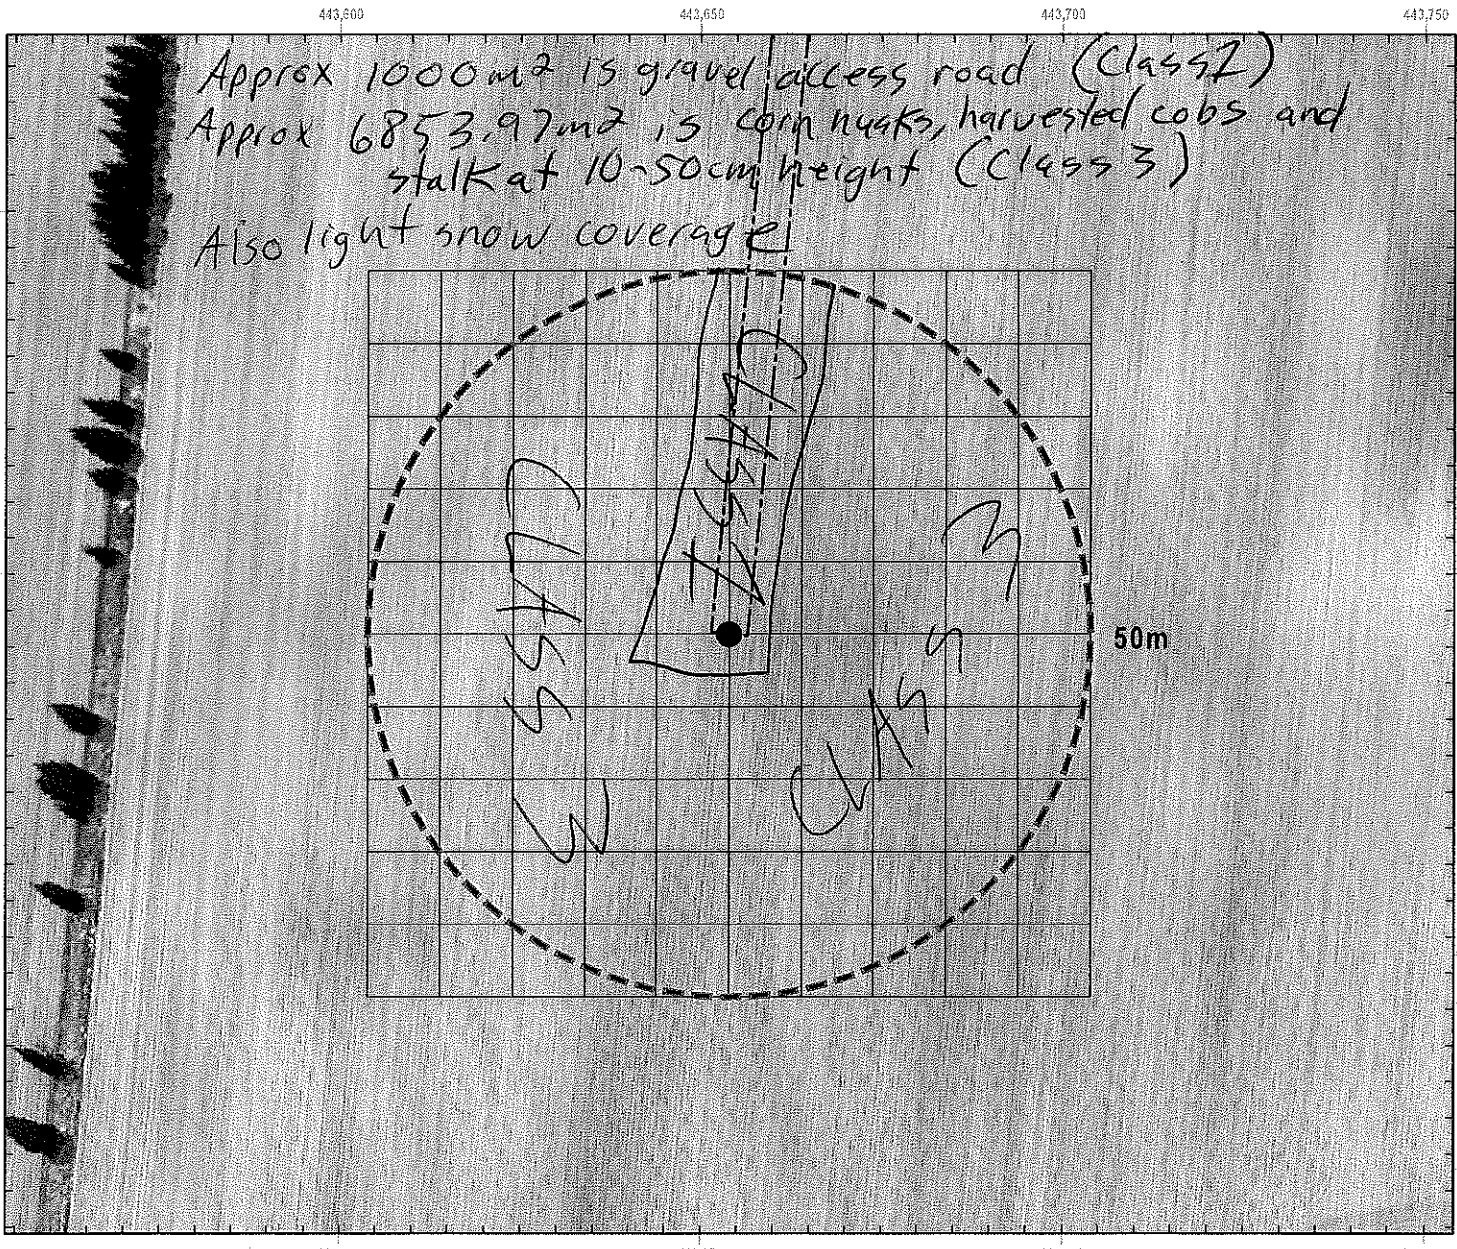 443,600 443,650 443,700 443,750
Approx 1000m2 is gravel access road (Class1)
Approx 6853.97m2 is corn husks, harvested cobs and
stalk at 10-50cm height (Class 3)
Also light snow coverage
CLASS 1
CLASS 3
CLASS 3
50m